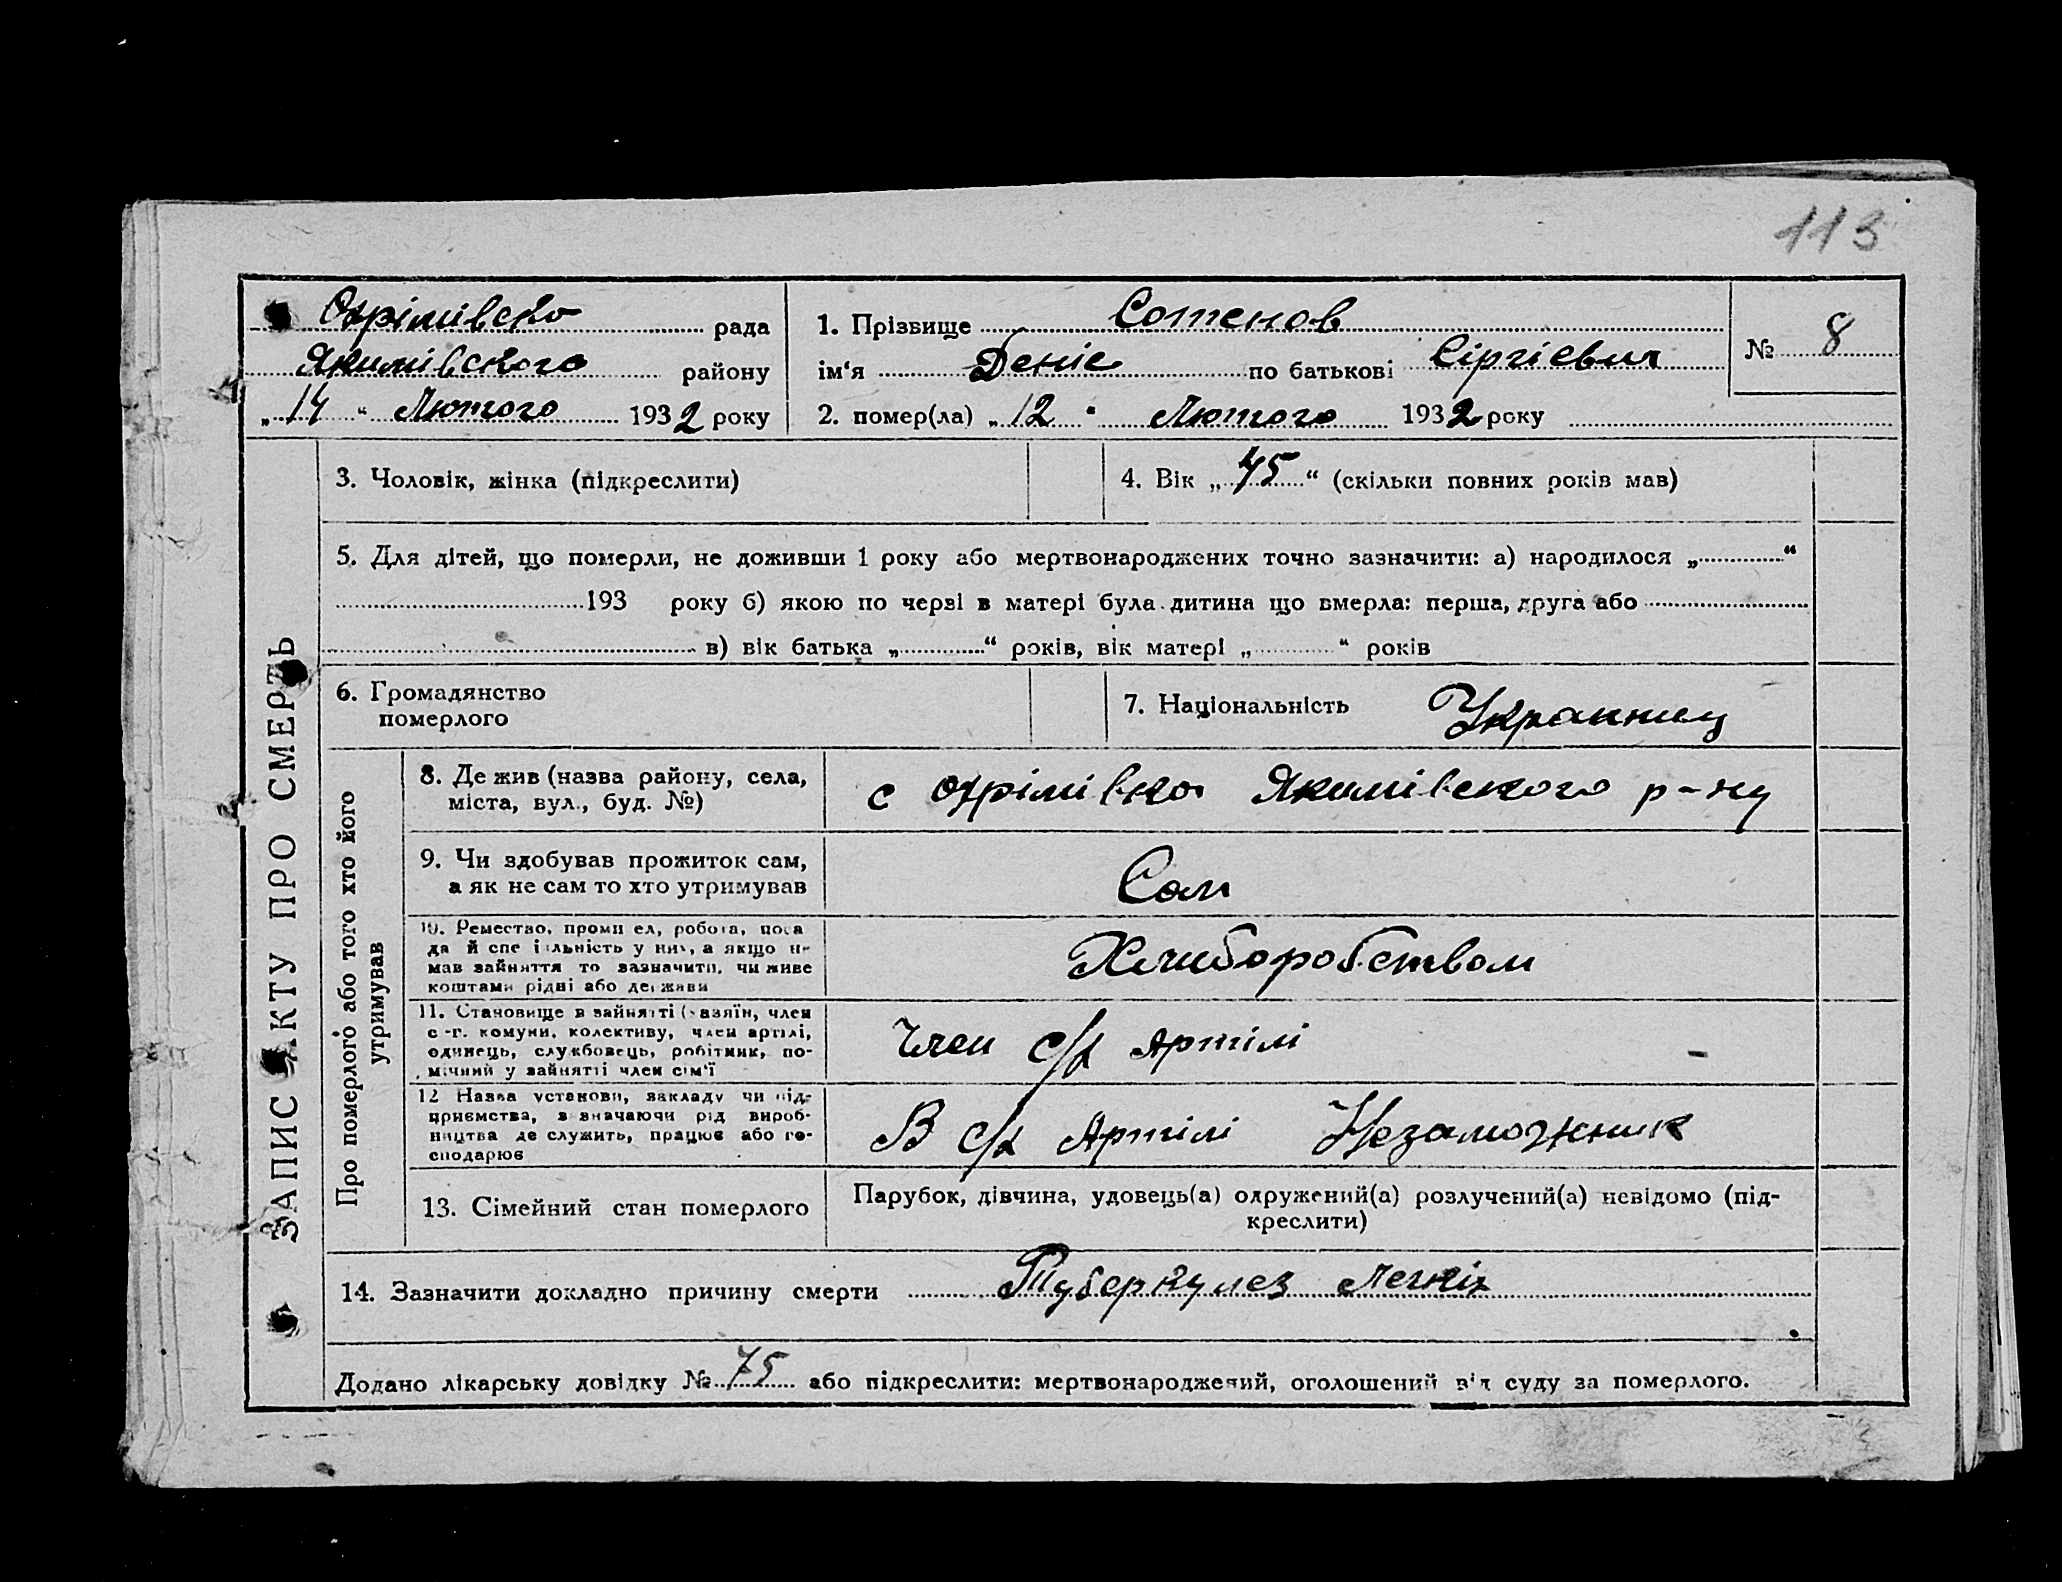 113
Охрімівско рада
Якимівского району
„ 14 “ Лютого 1932 року
1. Прізвище Сотенов
ім‘я Деніс по батькові Сіргіевич
2. помер(ла) „ 12 “ Лютого 1932 року
№ 8
ЗАПИС АКТУ ПРО СМЕРТЬ
3. Чоловік, жінка (підкреслити)
4. Вік „ 45 “ (скільки повних років мав)
5. Для дітей, що померли, не доживши 1 року або мертвонароджених точно зазначити: а) народилося „ “
193 року б) якою по черзі в матері була дитина що вмерла: перша, друга або
в) вік батька „ “ років, вік матері „ “ років
6. Громадянство
померлого
7. Національність Укранниц
Про померлого або того хто його
утримував
8. Де жив (назва району, села,
міста, вул., буд. №)
с Охрімівка Якимівского р-ну
9. Чи здобував прожиток сам,
а як не сам то хто утримував
Сам
10. Ремество, промисел, робота, поса
да й спеціяльність у них, а якщо не
мав зайняття то зазначити, чи живе
коштами рідні або держави
Хлиборобством
11. Становище в зайнятті (хазяїн, член
с.-г. комуни, колективу, член артілі,
одинець, службовець, робітник, по-
мічний у зайнятті член сім‘ї
Член с/г Артілі
12 Назва установи, закладу чи під-
приємства, зазначаючи рід вироб-
ництва де служить, працює або го-
сподарює
В с/г Артілі Незаможник
13. Сімейний стан померлого
Парубок, дівчина, удовець(а) одружений(а) розлучений(а) невідомо (під-
креслити)
14. Зазначити докладно причину смерти Туберкулез Легкіх
Додано лікарську довідку № 75 або підкреслити: мертвонароджений, оголошений від суду за померлого.